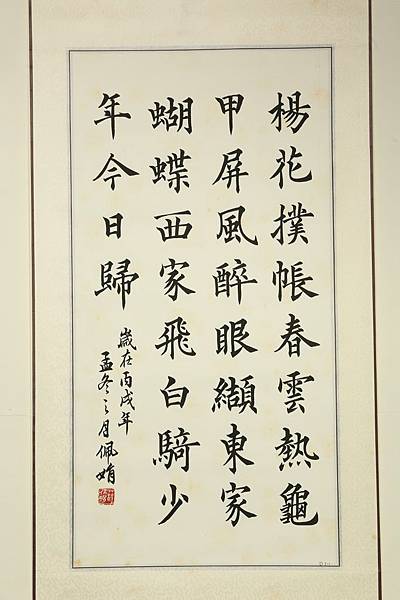 楊花撲帳春雲熱龜
甲屏風醉眼纈東家
蝴蝶西家飛白騎少
年今日歸
歲在丙戌年
孟冬之月佩娟